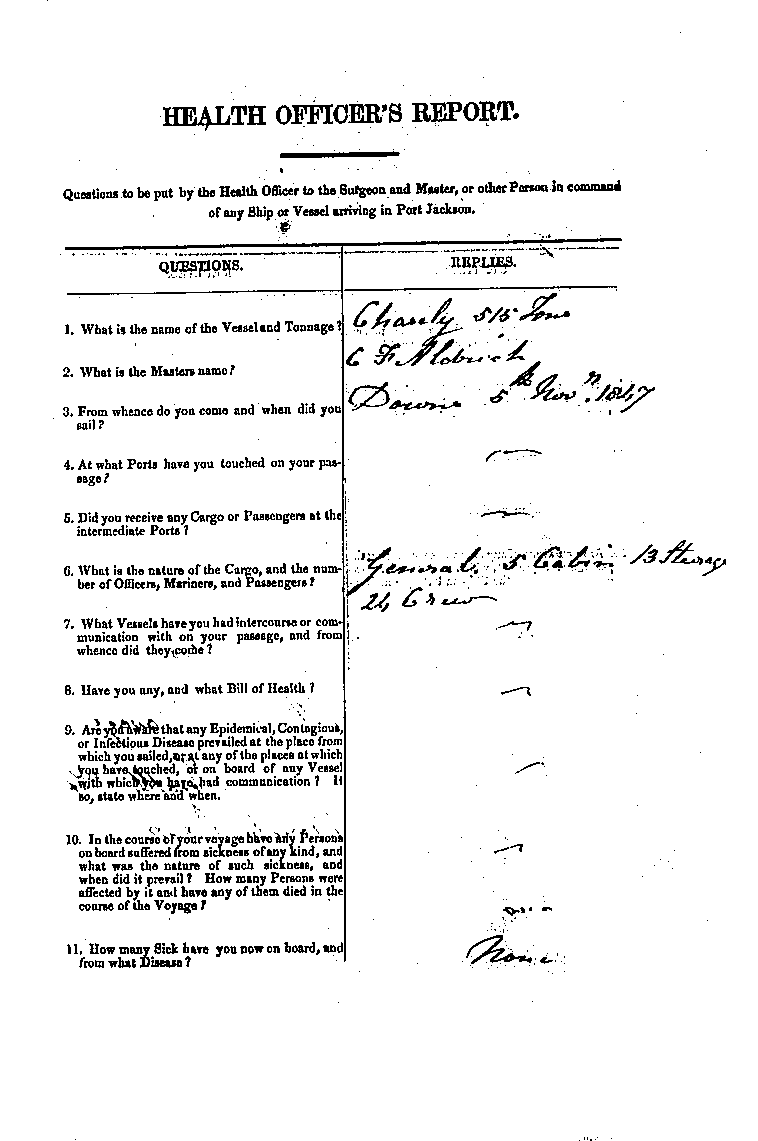 HEALTH OFFICER'S REPORT.
Questions to be put by the Health Officer to the Surgeon and Master, or other Person in command
of any Ship or Vessel arriving in Port Jackson.
QUESTIONS.
REPLIES.
1. What is the name of the Vessel and Tonnage?
Charely 515 Tons
2. What is the Masters name?
C F Aldrich
3. From whence do you come and when did you
sail?
Downs 5th Novr. 1847
4. At what Ports have you touched on your pas-
sage?
—
5. Did you receive any Cargo or Passengers at the
intermediate Ports?
—
6. What is the nature of the Cargo, and the num-
ber of Officers, Mariners, and Passengers?
General. 5 Cabin 13 Sterage
24 Crew
7. What Vessels have you had intercourse or com-
munication with on your passage, and from
whence did they come?
—
8. Have you any, and what Bill of Health?
—
9. Are you aware that any Epidemical, Contagious,
or Infectious Disease prevailed at the place from
which you sailed, or at any of the places at which
you have touched, or on board of any Vessel
with which you have had communication? If
so, state where and when.
—
10. In the course of your voyage have any Persons
on board suffered from sickness of any kind, and
what was the nature of such sickness, and
when did it prevail? How many Persons were
affected by it and have any of them died in the
course of the Voyage?
—
11. How many Sick have you now on board, and
from what Disease?
None